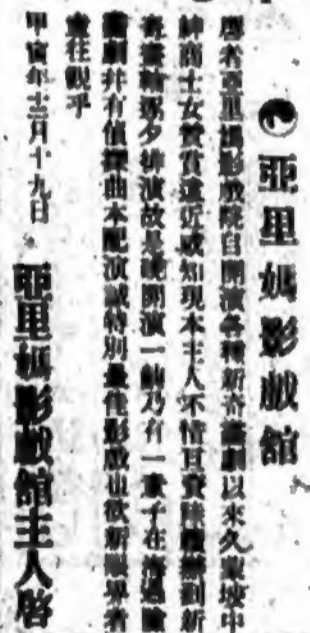 亞里媽影戲館
啓者亞里媽影戲院自開演各種新奇畫劇以來久蒙坡中
紳商士女贊賞遠近咸知現本主人不惜巨資陸續辦到新
奇畫輪逐夕排演故是晚開演一齣乃有一童子在
畫劇并有值禮曲本配演誠特別最佳影戲也欲新眼界者
盍往觀乎
甲寅年十二月十九日
亞里媽影戲館主人啓